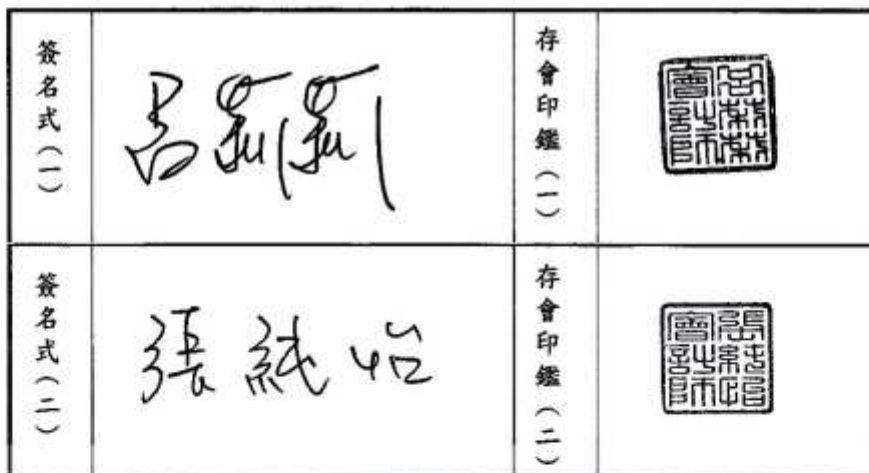 簽名式(一)
呂莉莉
存會印鑑(一)
呂莉莉會計師
簽名式(二)
張純怡
存會印鑑(二)
張純怡會計師